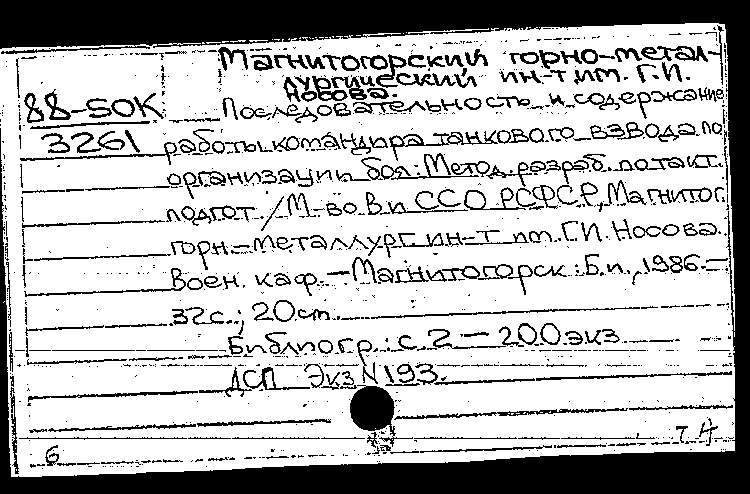 Магнитогорский горно-метал-
лургический ин-т им. Г.И.
Носова.
88-50К
3261
Последовательность и содержание
работы командира танкового взвода по
организации боя: Метод. разраб. по такт.
подгот. / М-во В и ССО РСФСР, Магнитог.
горн.-металлург. ин-т им. Г.И. Носова.
Воен. каф. - Магнитогорск: Б.и., 1986. -
32 с.; 20 см.
Библиогр.: с. 2 - 200 экз
ДСП Экз N 193.
6